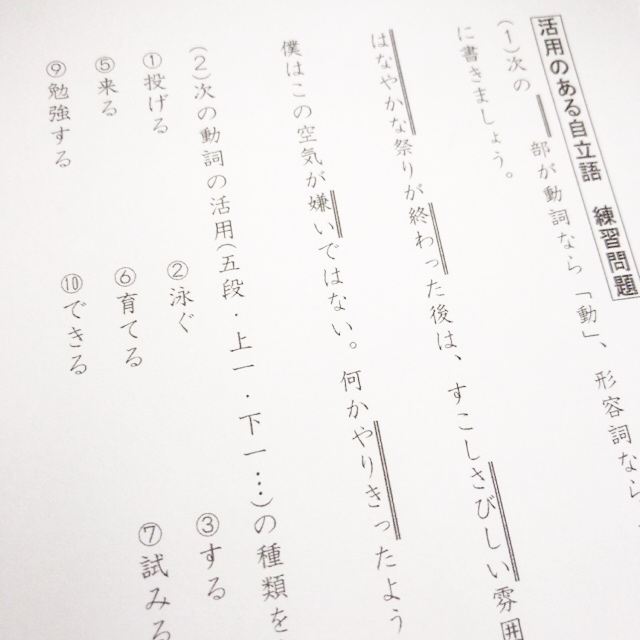 活用のある自立語 練習問題
(1)次の 部が動詞なら「動」、形容詞なら
に書きましょう。
はなやかな祭りが終わった後は、すこしさびしい雰囲
僕はこの空気が嫌いではない。何かやりきったよう
(2)次の動詞の活用(五段・上一・下一…)の種類を
①投げる ②泳ぐ ③する
⑤来る ⑥育てる ⑦試みる
⑨勉強する ⑩できる